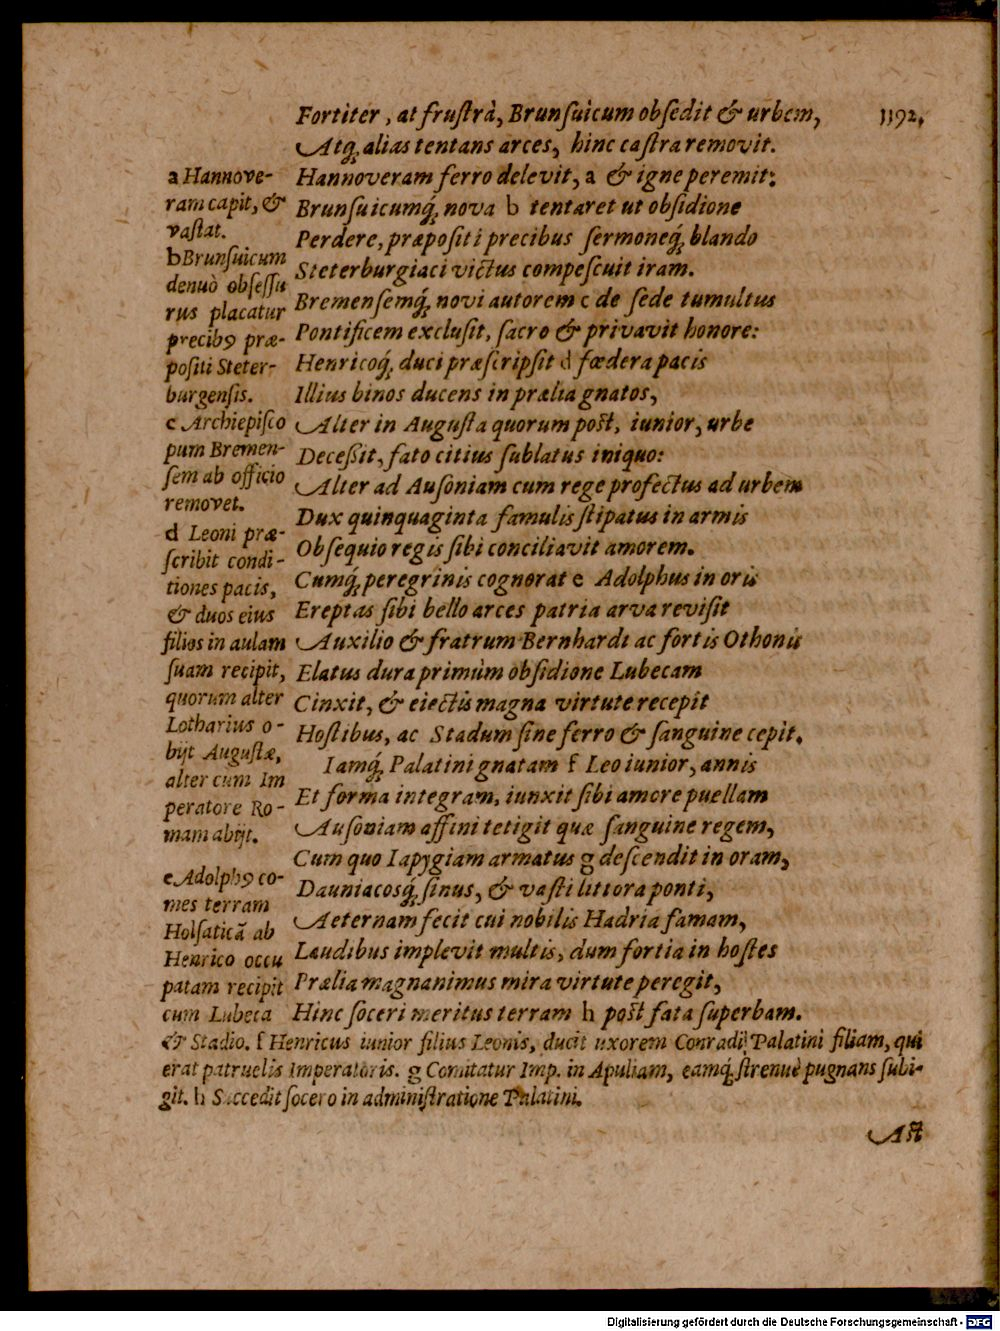 Fortiter, at frustrà, Brunsuicum obsedit & urbem,
1192.
Atq́; alias tentans arces, hinc castra removit.
Hannoveram ferro delevit, a & igne peremit:
Brunsuicumq́; nova b tentaret ut obsidione
Perdere, præpositi precibus sermoneq́; blando
Steterburgiaci victus compescuit iram.
Bremensemq́; novi autorem c de sede tumultus
Pontificem exclusit, sacro & privavit honore:
Henricoq́; duci præscripsit d fœdera pacis
Illius binos ducens in prælia gnatos,
Alter in Augusta quorum post, iunior, urbe
Decessit, fato citius sublatus iniquo:
Alter ad Ausoniam cum rege profectus ad urbem
Dux quinquaginta famulis stipatus in armis
Obsequio regis sibi conciliavit amorem.
Cumq́; peregrinis cognorat e Adolphus in oris
Ereptas sibi bello arces patria arva revisit
Auxilio & fratrum Bernhardi ac fortis Othonis
Elatus dura primùm obsidione Lubecam
Cinxit, & eiectis magna virtute recepit
Hostibus, ac Stadum sine ferro & sanguine cepit.
Iamq́; Palatini gnatam f Leo iunior, annis
Et forma integram, iunxit sibi amore puellam
Ausoniam affini tetigit quæ sanguine regem,
Cum quo Iapygiam armatus g descendit in oram,
Dauniacosq́; sinus, & vasti littora ponti,
Aeternam fecit cui nobilis Hadria famam,
Laudibus implevit multis, dum fortia in hostes
Prælia magnanimus mira virtute peregit,
Hinc soceri meritus terram h post fata superbam.
a Hannove-
ram capit, &
vastat.
b Brunsuicum
denuò obsessu
rus placatur
precibꝰ præ-
positi Steter-
burgensis.
c Archiepisco
pum Bremen-
sem ab officio
removet.
d Leoni præ-
scribit condi-
tiones pacis,
& duos eius
filios in aulam
suam recipit,
quorum alter
Lotharius o-
bijt Augustæ,
alter cum Im
peratore Ro-
mam abijt.
e Adolphꝰ co-
mes terram
Holsaticã ab
Henrico occu
patam recipit
cum Lubeca
& Stadio. f Henricus iunior filius Leonis, ducit uxorem Conradi Palatini filiam, qui
erat patruelis Imperatoris. g Comitatur Imp. in Apuliam, eamq́; strenuè pugnans subi-
git. h Succedit socero in administratione Palatini.
Ast
Digitalisierung gefördert durch die Deutsche Forschungsgemeinschaft - DFG